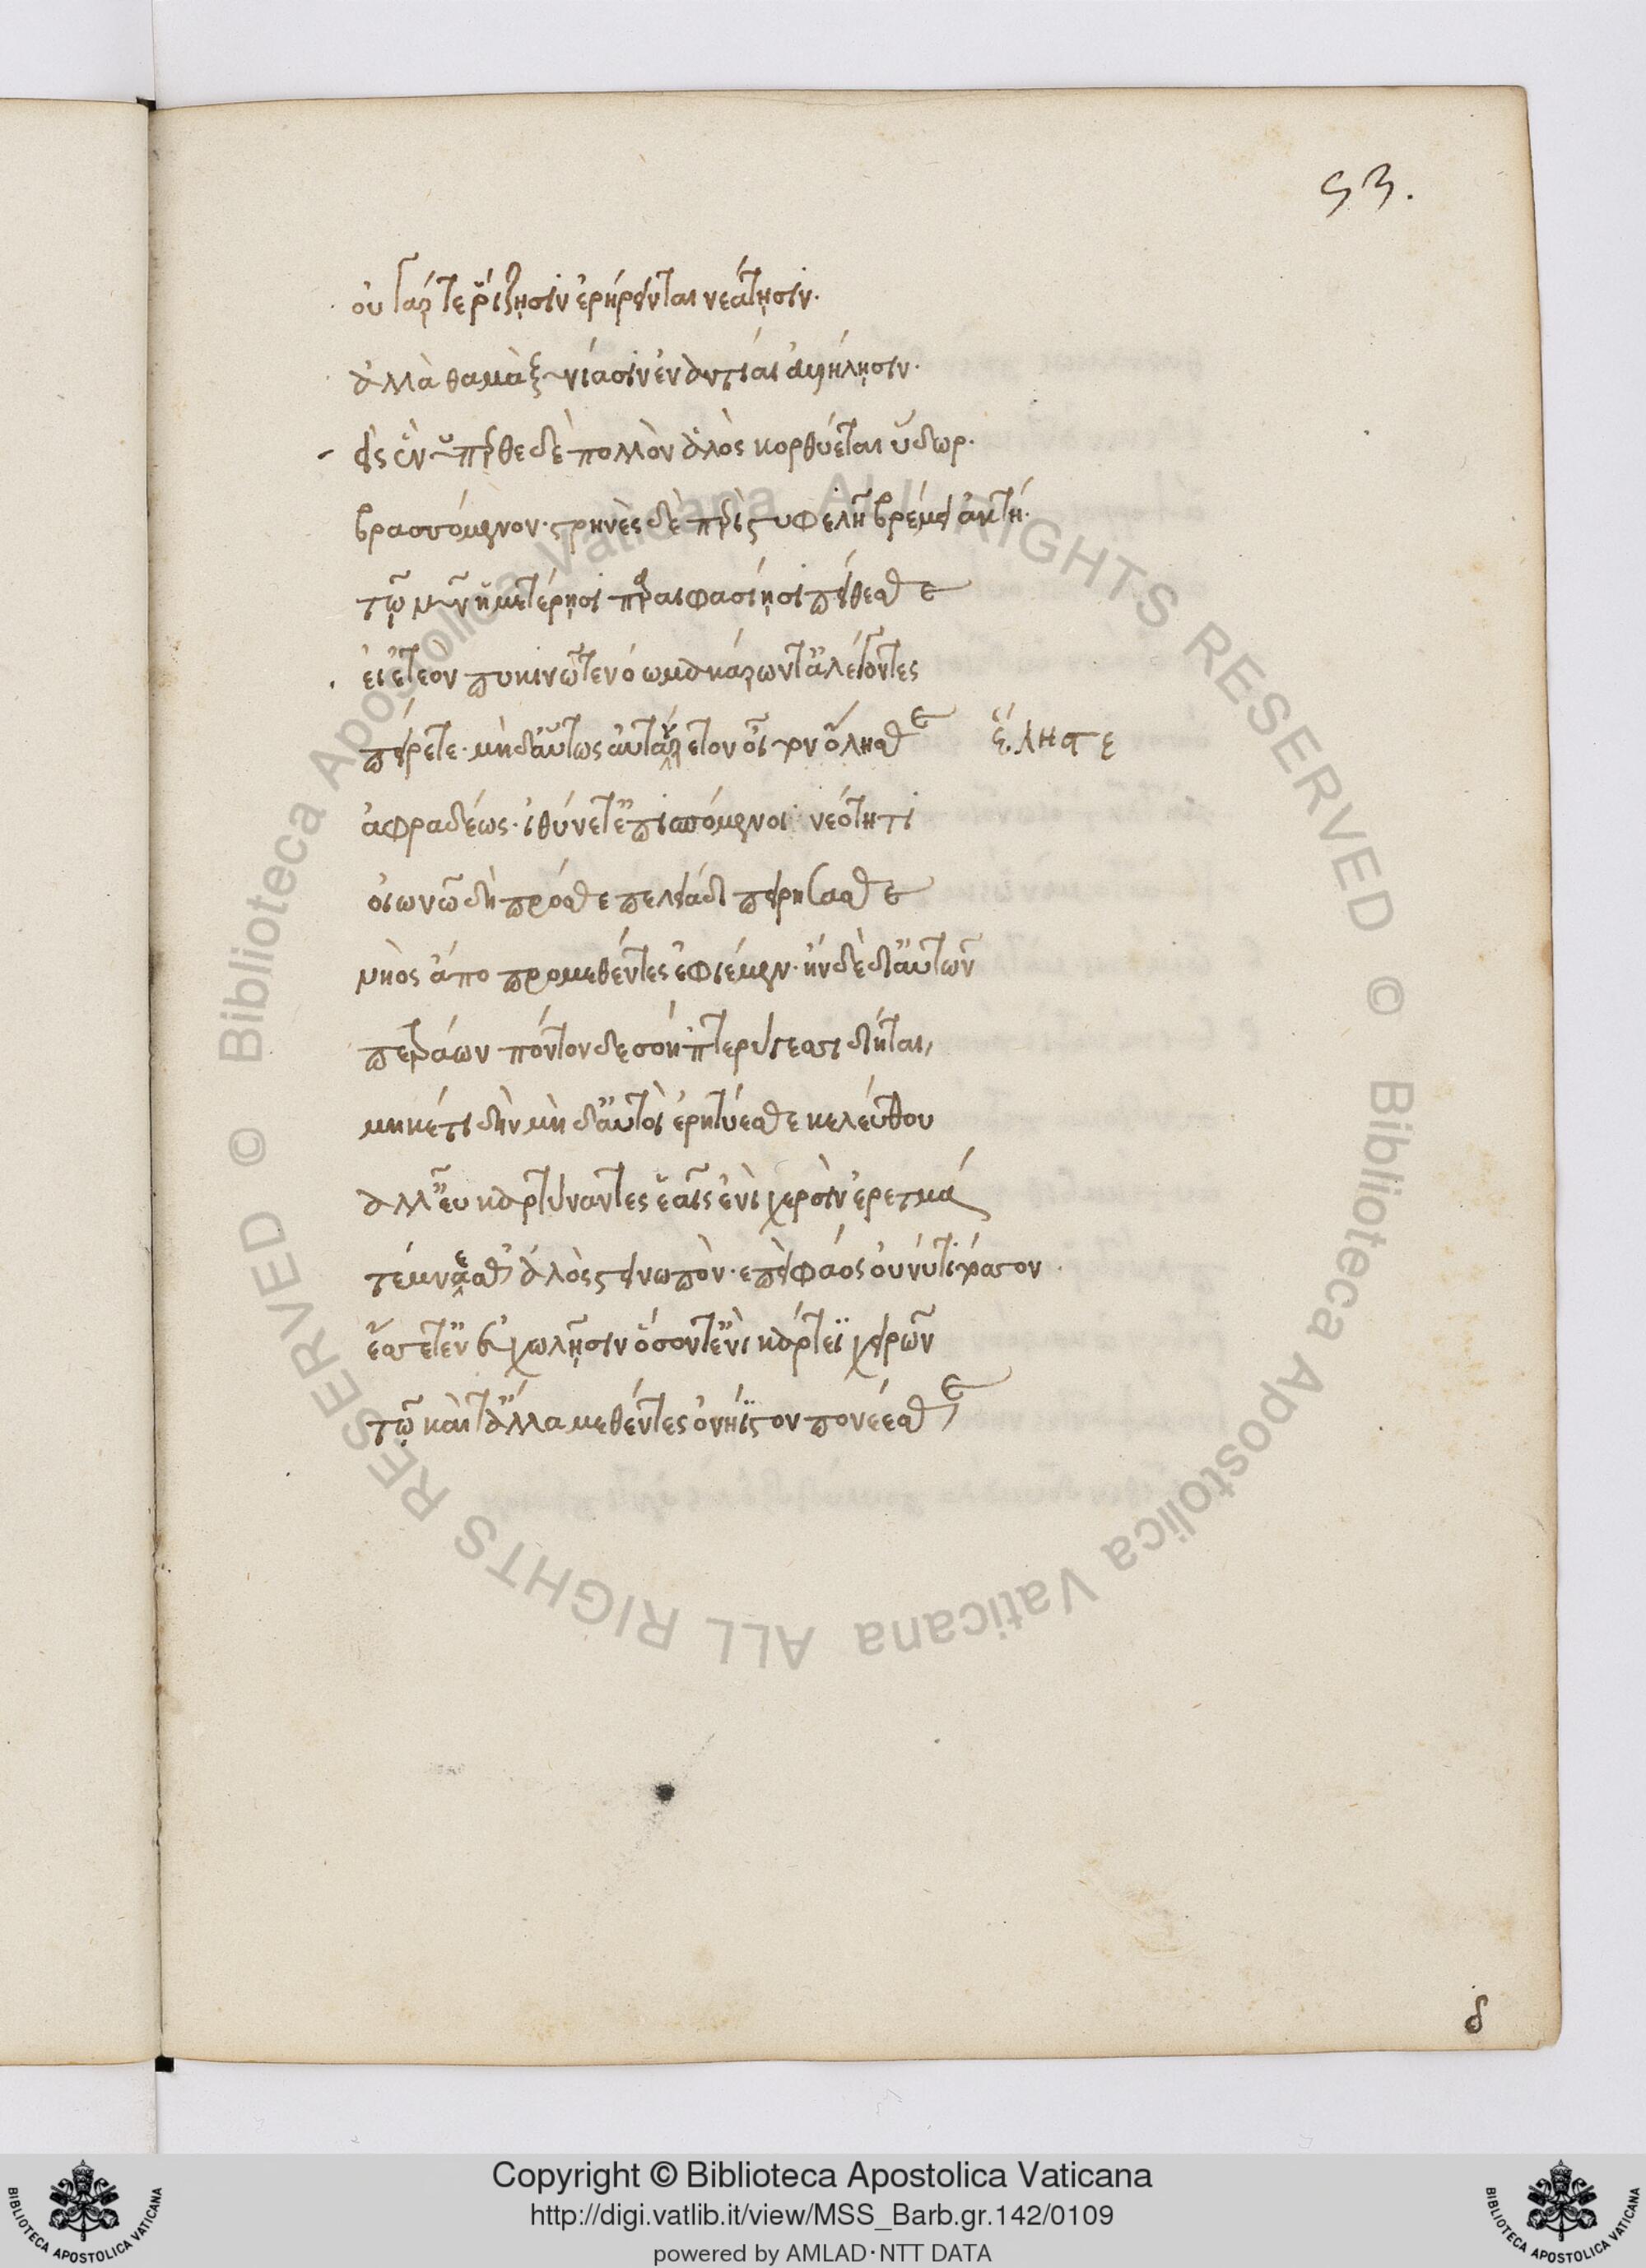 53.
οὐ γάρ τε ῥίζῃσιν ἐρήρεινται νεάτῃσιν.
ἀλλὰ θαμὰ ξυνίασιν ἐναντίαι ἀλλήλῃσιν.
εἰς ἓν ὕπερθε δὲ πολλὸν ἁλὸς κορθύεται ὕδωρ.
βρασσόμενον· στρηνὲς δὲ περὶ στυφελῇ βρέμει ἀκτή.
τῷ νῦν ἡμετέρῃσι παραιφασίῃσι πείθεσθε
εἰ ἐτεὸν πυκινῷ τε νόῳ μακάρων τ' ἀλέγοντες
πείρετε· μὴδ' αὔτως αὐτάγρετον οἶτον ὄλησθε ἕλησθε
ἀφραδέως· ἰθύνετ' ἐπισπόμενοι νεότητι
οἰωνῷ δὴ πρόσθε πελειάδι πειρήσασθε
νηὸς ἄπο προμεθέντες ἐφιέμεν· ἢν δὲ δι' αὐτῶν
πετράων πόντον δὲ σόη πτερύγεσσι δίηται,
μηκέτι δὴν μὴδ' αὐτοὶ ἐρητύεσθε κελεύθου
ἀλλ' εὖ καρτύναντες ἑαῖς ἐνὶ χερσὶν ἐρετμά
τέμνεσθ' ἁλὸς στεινωπὸν· ἐπεὶ φάος οὔ νύ τι τόσσον
ἔσσετ' ἐν εὐχωλῇσιν ὅσον τ' ἐνὶ κάρτεϊ χειρῶν
τῷ καὶ τἄλλα μεθέντες ὀνήϊστον πονέεσθε
δ
Copyright © Biblioteca Apostolica Vaticana
http://digi.vatlib.it/view/MSS_Barb.gr.142/0109
powered by AMLAD·NTT DATA
BIBLIOTECA APOSTOLICA VATICANA
BIBLIOTECA APOSTOLICA VATICANA
© Biblioteca Apostolica Vaticana ALL RIGHTS RESERVED © Biblioteca Apostolica Vaticana ALL RIGHTS RESERVED